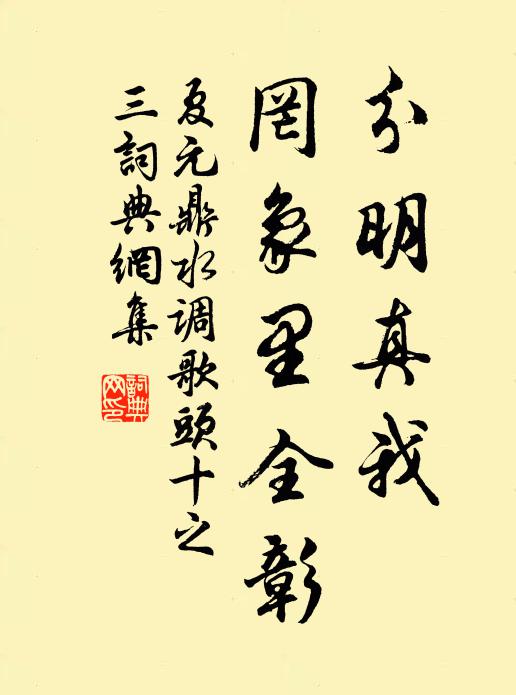 分明真我
罔象里全彰
夏元鼎水调歌頭十之
三詞典網集
詞典
网印